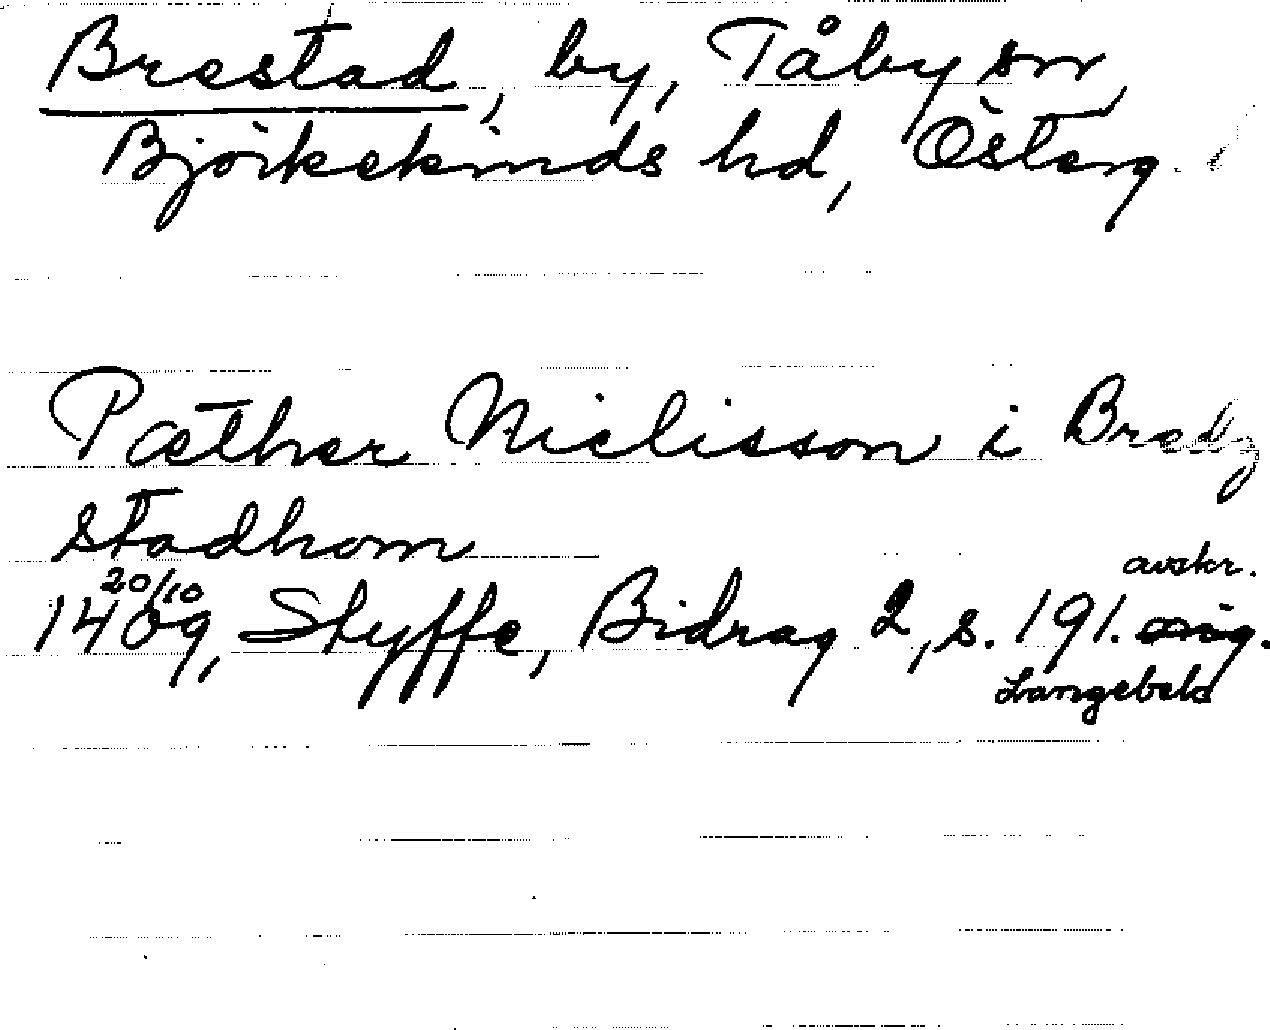 Brestad, by, Tåby sn,
Björkekinds hd, Österg.
Pæther Nielisson i Bredz
stadhom
20/10 avskr.
1409, Styffe, Bidrag 2, s. 191. orig.
Langebek